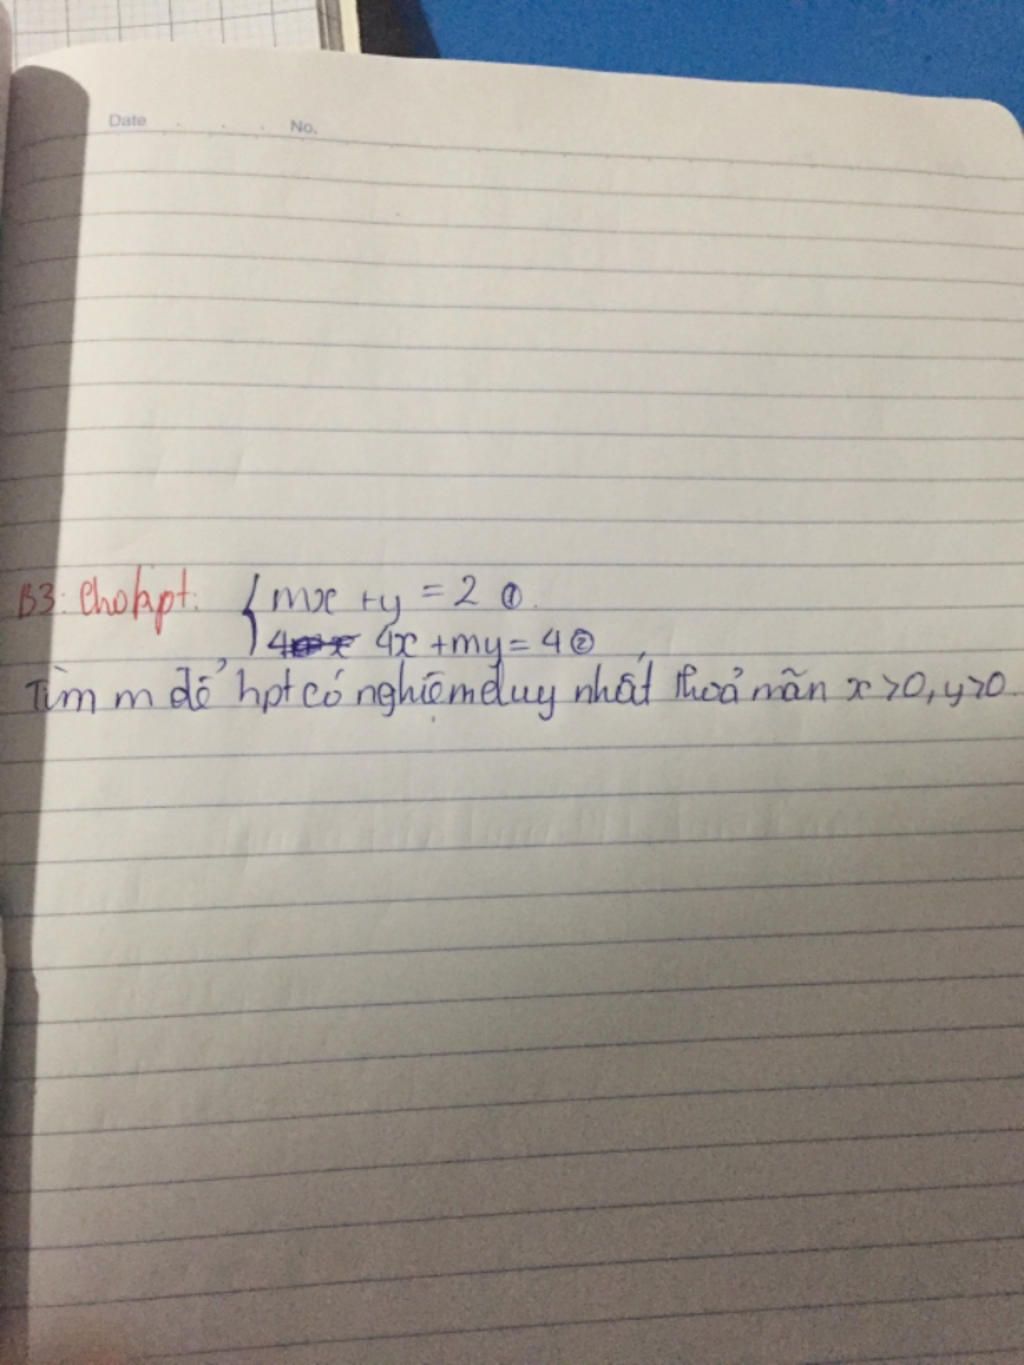 Date No.
B3: Cho hpt: { mx + y = 2 ①.
4x + my = 4 ②
Tìm m để hpt có nghiệm duy nhất thoả mãn x > 0, y > 0.